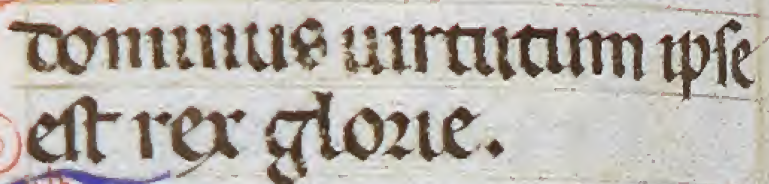 dominus uirtutum ipse
est rex glorie.